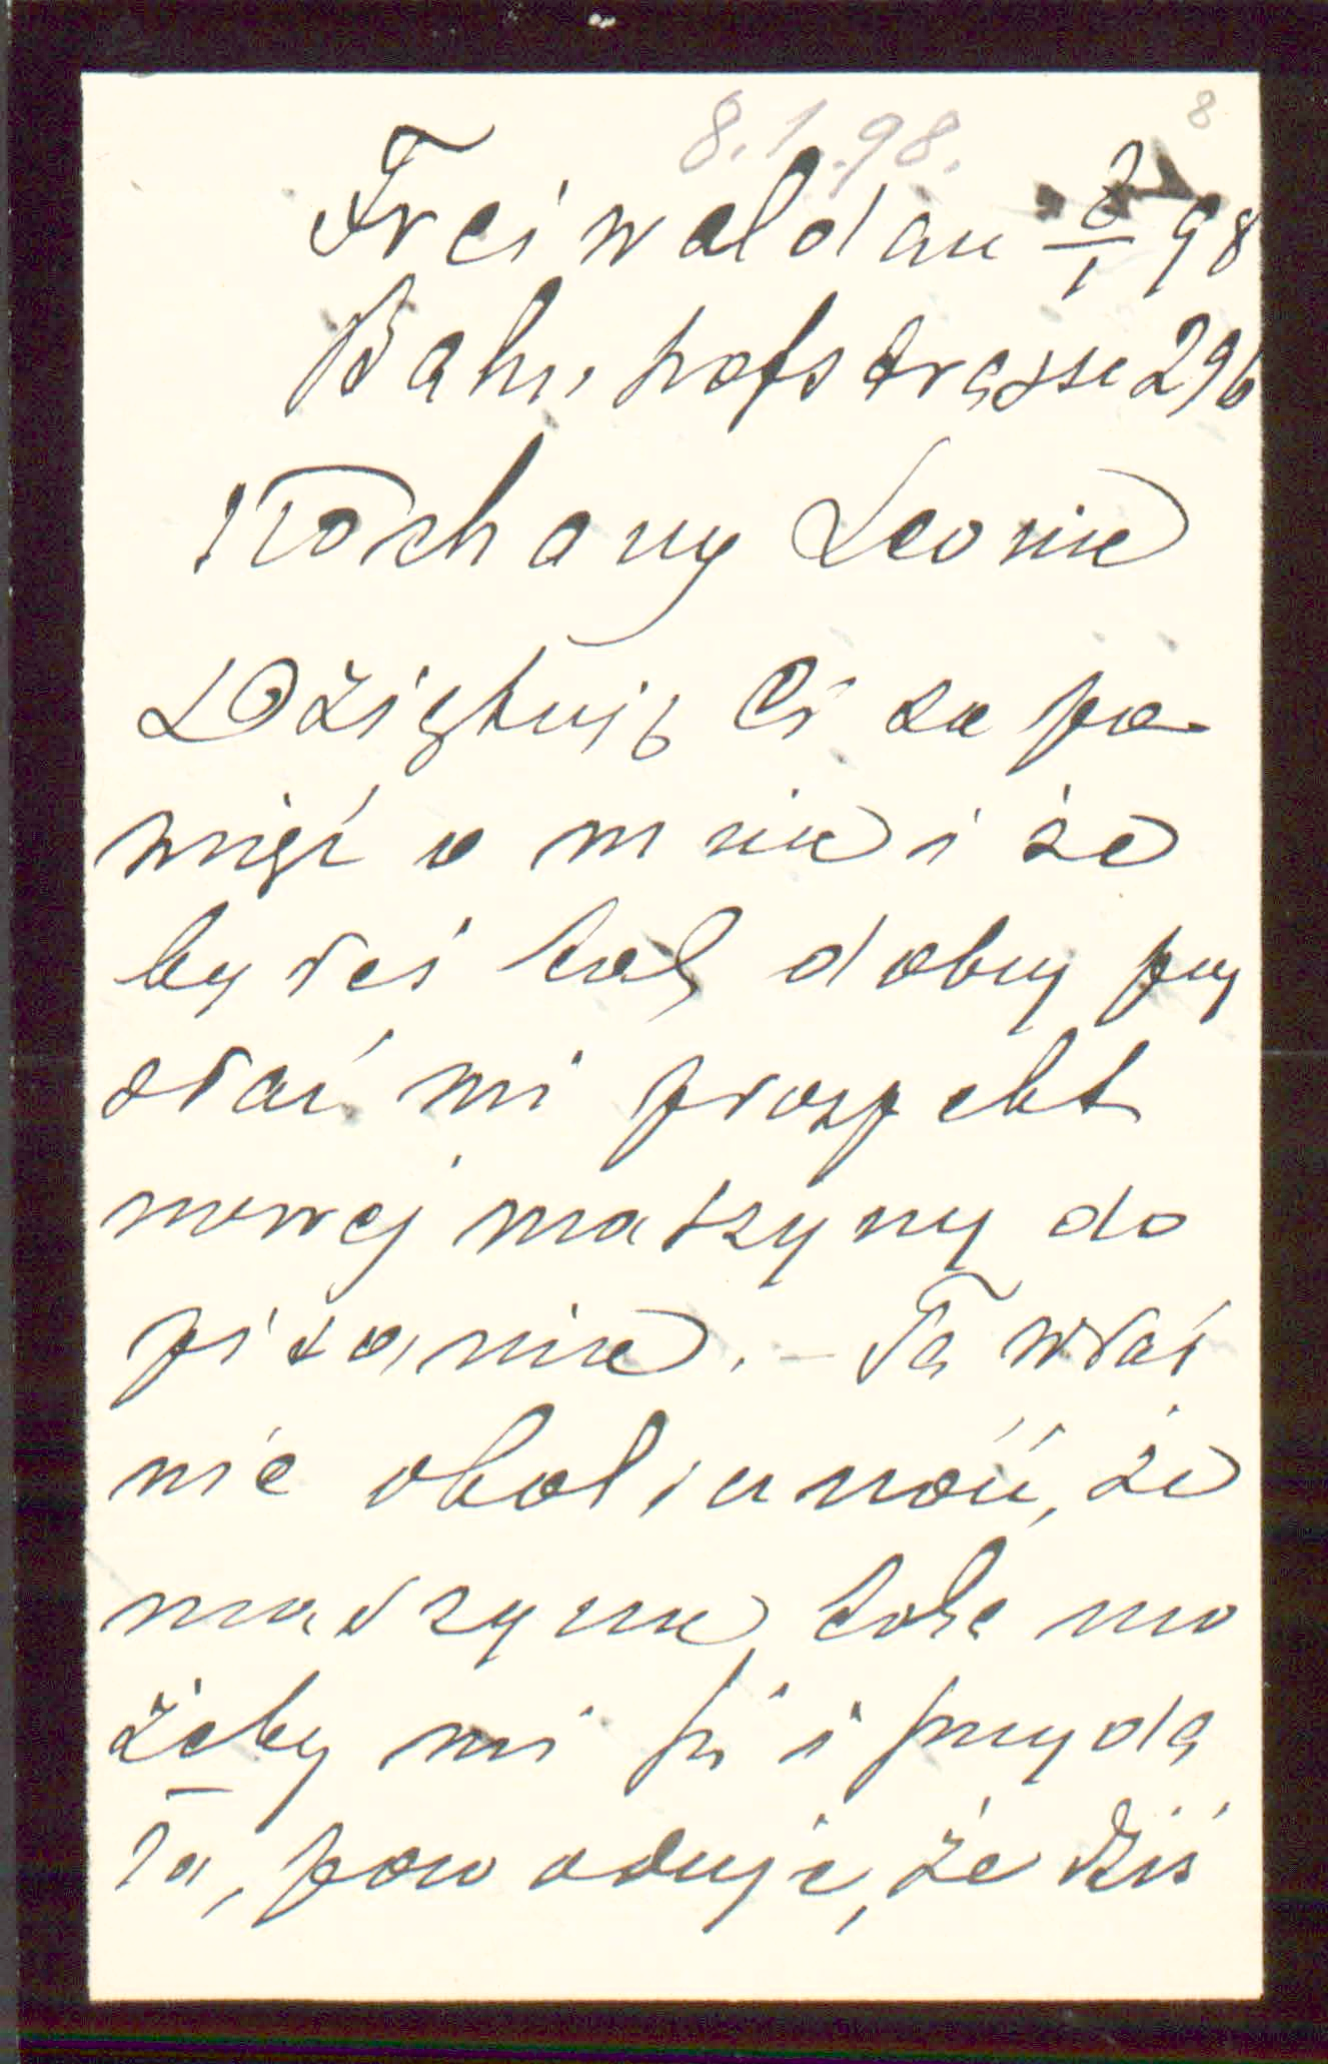 8.1.98.
8
Freiwaldau 8/1 98
Bahnhofstrasse 296
Kochany Leonie
Dziękuję Ci za pa-
mięć o mnie i że
byłeś tak dobry przy
słać mi prospekt
nowej maszyny do
pisania. – Ta właś
nie okoliczność, że
maszyna taka mo
żeby mi się i przyda
ła, powoduje, że dziś